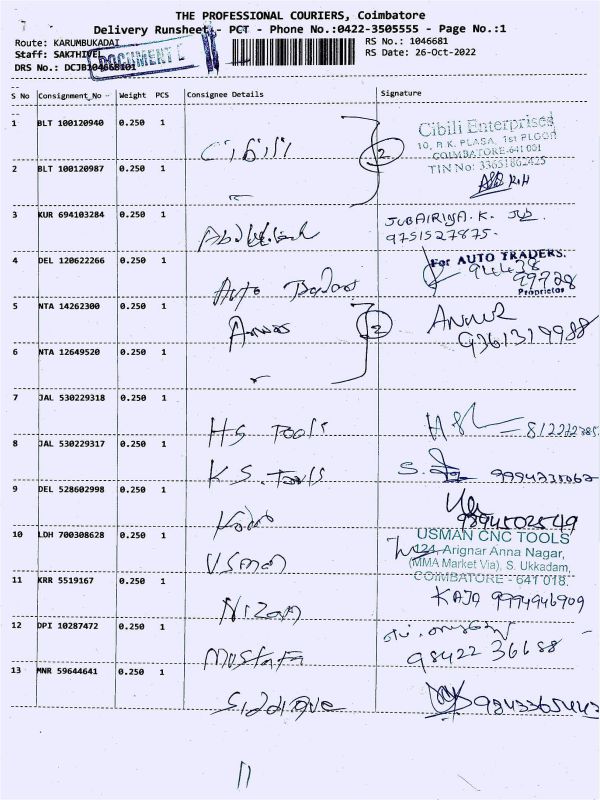 THE PROFESSIONAL COURIERS, Coimbatore
Delivery Runsheet - PCT - Phone No.:0422-3505555 - Page No.:1
Route: KARUMBUKADAI
RS No.: 1046681
Staff: SAKTHIVEL
RS Date: 26-Oct-2022
DOCUMENT
DRS No.: DCJB104668101
S No Consignment_No Weight PCS Consignee Details Signature
1 BLT 100120940 0.250 1 Cibili
2
Cibili Enterprises
10, R K. PLASA, 1st FLOOR
COIMBATORE-641 001
TIN No: 33651862425
2 BLT 100120987 0.250 1
3 KUR 694103284 0.250 1
JUBAIRIYA. K.
9751527875.
4 DEL 120622266 0.250 1 Auto
For AUTO TRADERS.
94438
97728
Proprietor
5 NTA 14262300 0.250 1 Anwar
2
9361319988
6 NTA 12649520 0.250 1
7 JAL 530229318 0.250 1 HS Tools
8 JAL 530229317 0.250 1 K S. Tools
9 DEL 528602998 0.250 1
9894502549
10 LDH 700308628 0.250 1 Usman
USMAN CNC TOOLS
124, Arignar Anna Nagar,
(MMA Market Via), S. Ukkadam,
COIMBATORE - 641 018.
11 KRR 5519167 0.250 1 Nizam
KAJA 9994946909
12 DPI 10287472 0.250 1 Mustafa
98422 36688
13 MNR 59644641 0.250 1 Siddique
9843365443
11